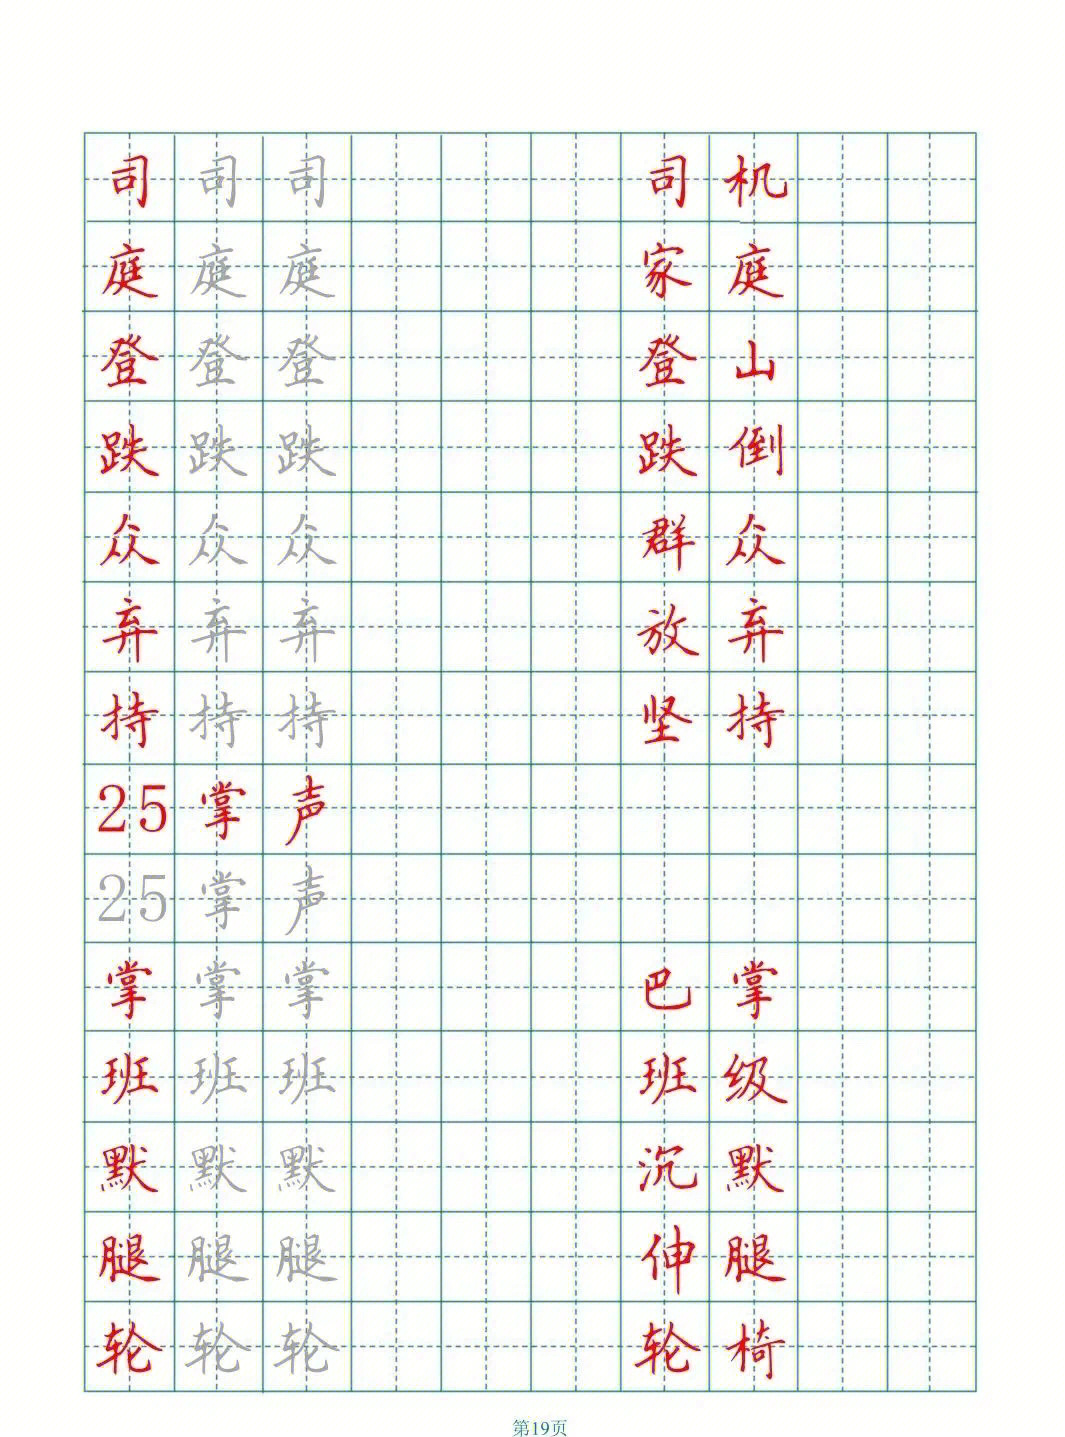 司司司 司机
庭庭庭 家庭
登登登 登山
跌跌跌 跌倒
众众众 群众
弃弃弃 放弃
持持持 坚持
25掌声
25掌声
掌掌掌 巴掌
班班班 班级
默默默 沉默
腿腿腿 伸腿
轮轮轮 轮椅
第19页